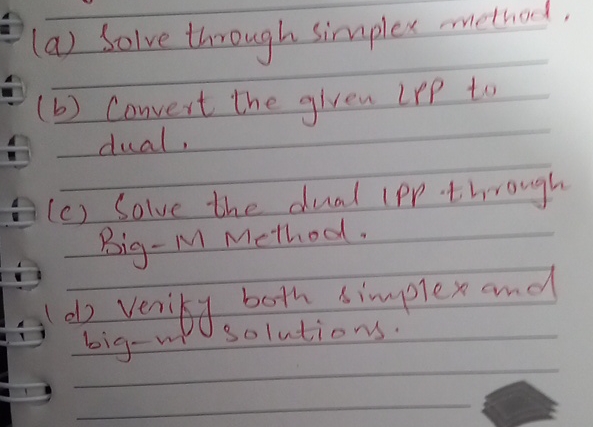 (a) Solve through simplex method.
(b) Convert the given LPP to
dual.
(c) Solve the dual LPP through
Big-M Method.
(d) Verify both simplex and
big-m solutions.